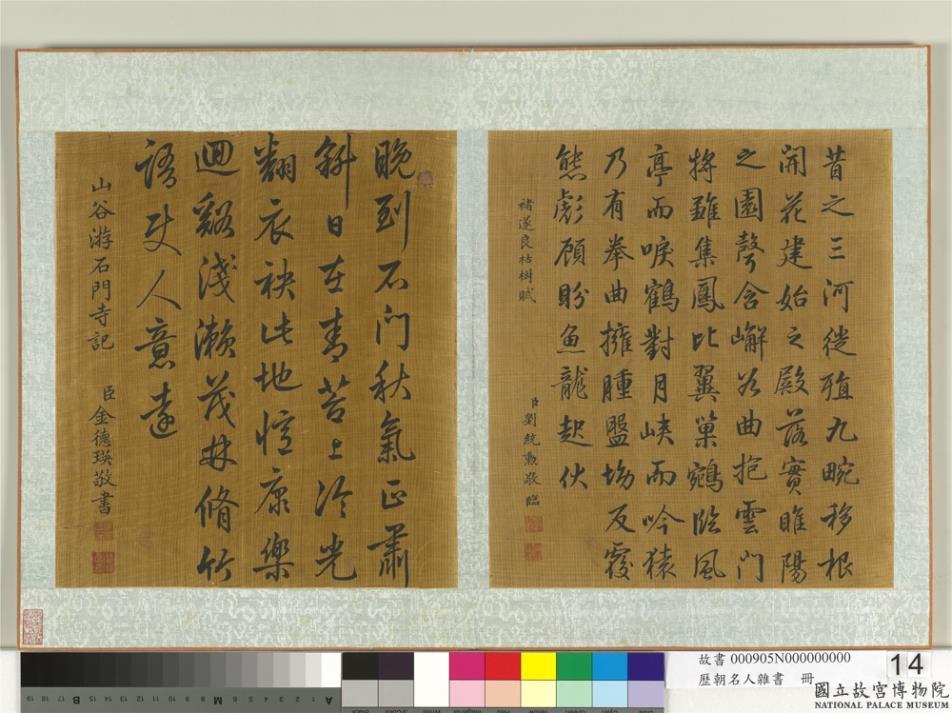 昔之三河徙殖九畹移根
開花建始之殿落實睢陽
之園聲含嶰谷曲抱雲門
將雛集鳳比翼巢鵷臨風
亭而唳鶴對月峽而吟猿
乃有拳曲擁腫盤坳反覆
熊彪顧盼魚龍起伏
褚遂良枯樹賦
臣劉統勳敬臨
晩到石门秋氣正肅
斜日在青苔上冷光
翻衣袂此地恠康樂
迴谿淺瀨茂林脩竹
語使人意遠
山谷游石門寺記
臣金德瑛敬書
故書 000905N000000000
歷朝名人雜書 冊
14
國立故宮博物院
NATIONAL PALACE MUSEUM